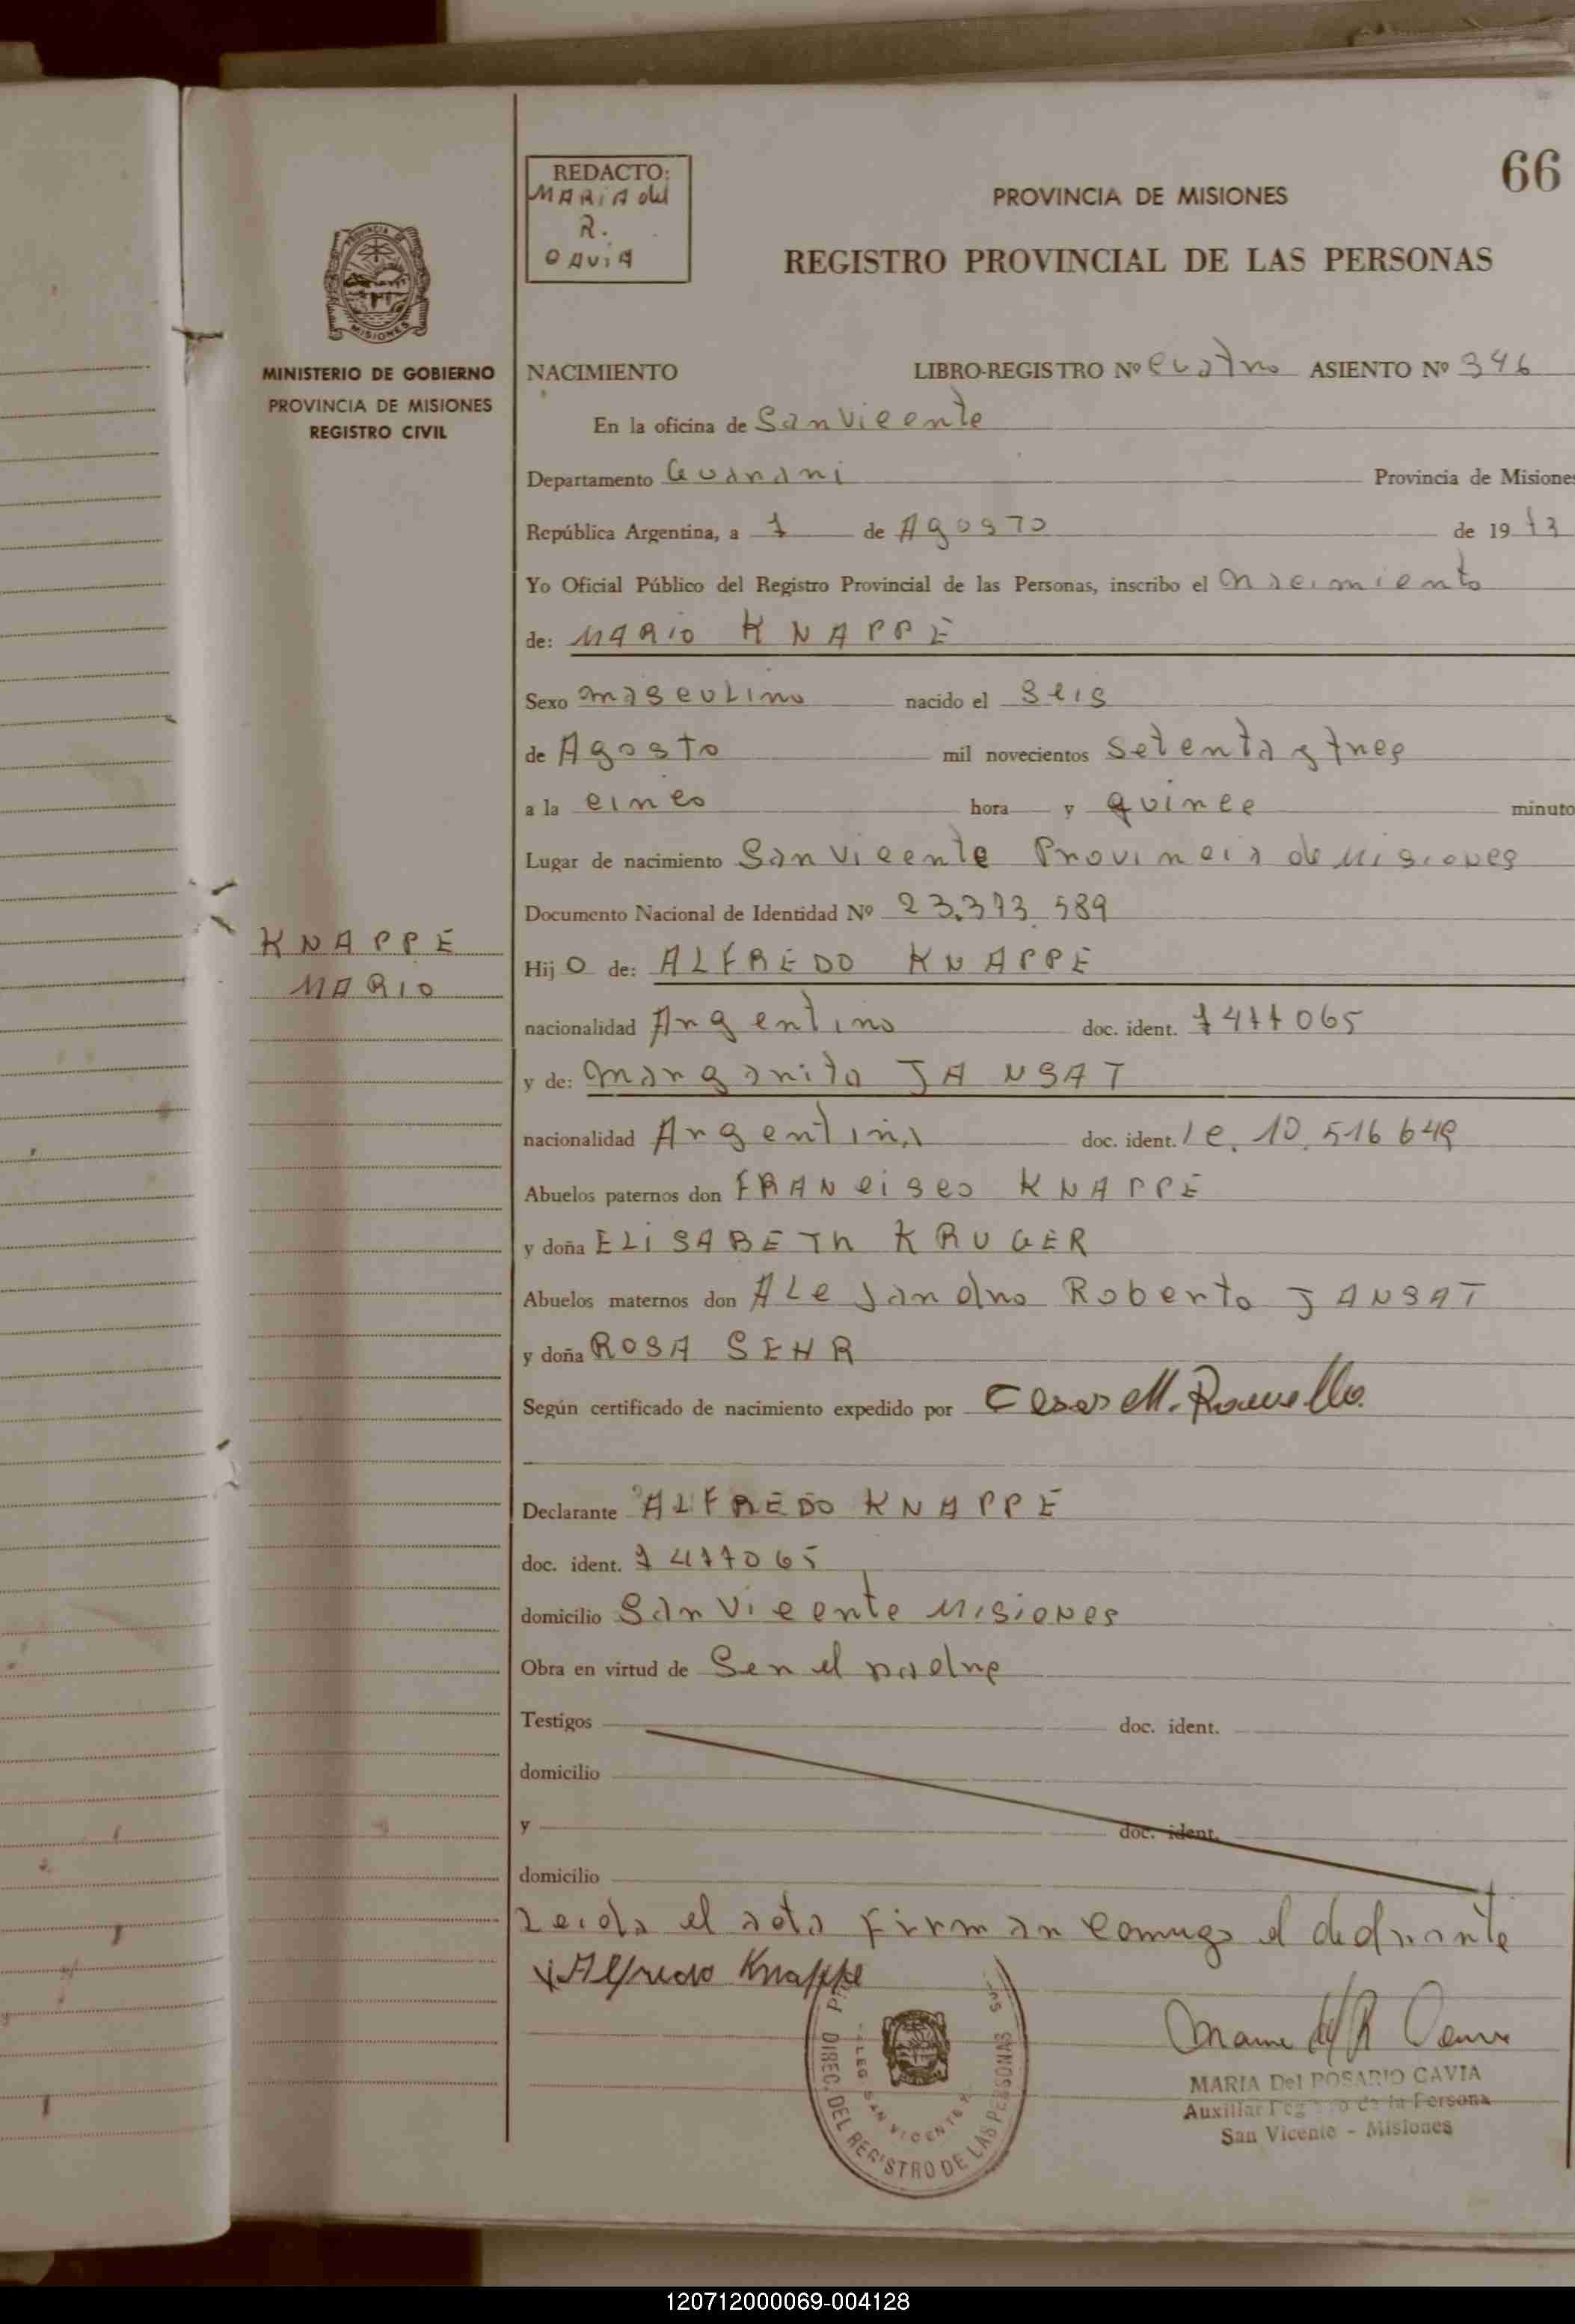 66
REDACTO:
MARIA del
R.
GAVIA
PROVINCIA DE MISIONES
REGISTRO PROVINCIAL DE LAS PERSONAS
PROVINCIA DE MISIONES
MINISTERIO DE GOBIERNO
PROVINCIA DE MISIONES
REGISTRO CIVIL
NACIMIENTO LIBRO-REGISTRO Nº cuatro ASIENTO Nº 346
En la oficina de San Vicente
Departamento Guarani Provincia de Misiones
República Argentina, a 7 de Agosto de 1973
Yo Oficial Público del Registro Provincial de las Personas, inscribo el nacimiento
de: MARIO KNAPPE
Sexo masculino nacido el seis
de Agosto mil novecientos setenta y tres
a la cinco hora y quince minuto
Lugar de nacimiento San Vicente Provincia de Misiones
Documento Nacional de Identidad Nº 23.373.589
KNAPPE
MARIO
Hijo de: ALFREDO KNAPPE
nacionalidad Argentino doc. ident. 7477065
y de: Margarita JANSAT
nacionalidad Argentina doc. ident. 10.516649
Abuelos paternos don FRANcisco KNAPPE
y doña ELISABETH KRUGER
Abuelos maternos don ALejandro Roberto JANSAT
y doña ROSA SEHR
Según certificado de nacimiento expedido por Cesar M.
Declarante ALFREDO KNAPPE
doc. ident. 7477065
domicilio San Vicente Misiones
Obra en virtud de Ser el padre
Testigos doc. ident.
domicilio
y doc. ident.
domicilio
Leida el acta firman conmigo el declarante
Alfredo Knappe
DIREC. DEL REGISTRO DE LAS PERSONAS
SAN VICENTE
MARIA Del ROSARIO GAVIA
Auxiliar Registro de la Persona
San Vicente - Misiones
120712000069-004128